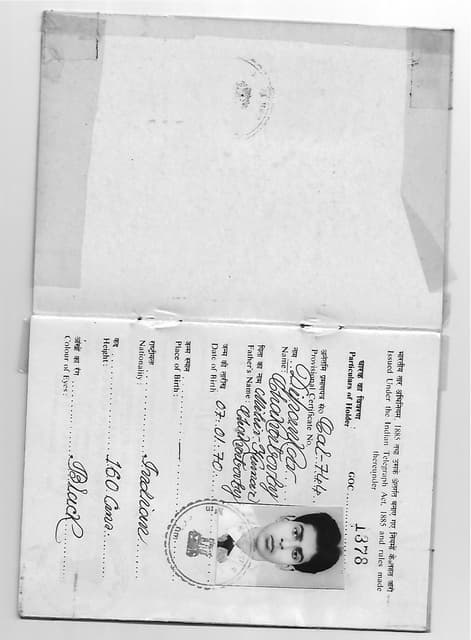 भारतीय तार अधिनियम, 1885 तथा उसके अंतर्गत बनाए गए नियमों के अंतर्गत जारी
Issued Under the Indian Telegraph Act, 1885 and rules made
thereunder
धारक का विवरण
Particulars of Holder :
GOC
1378
Provisional Certificate No. Cal-744
नाम
Name: Dipandra
Chakraborty
पिता का नाम
Father's Name: Mihir Kumar
Chakraborty
जन्म की तारीख
Date of Birth : 07.01.70.
जन्म स्थान
Place of Birth :
राष्ट्रीयता
Nationality. Indian
कद
Height: 160 Cms.
आंखों का रंग
Colour of Eyes: Black